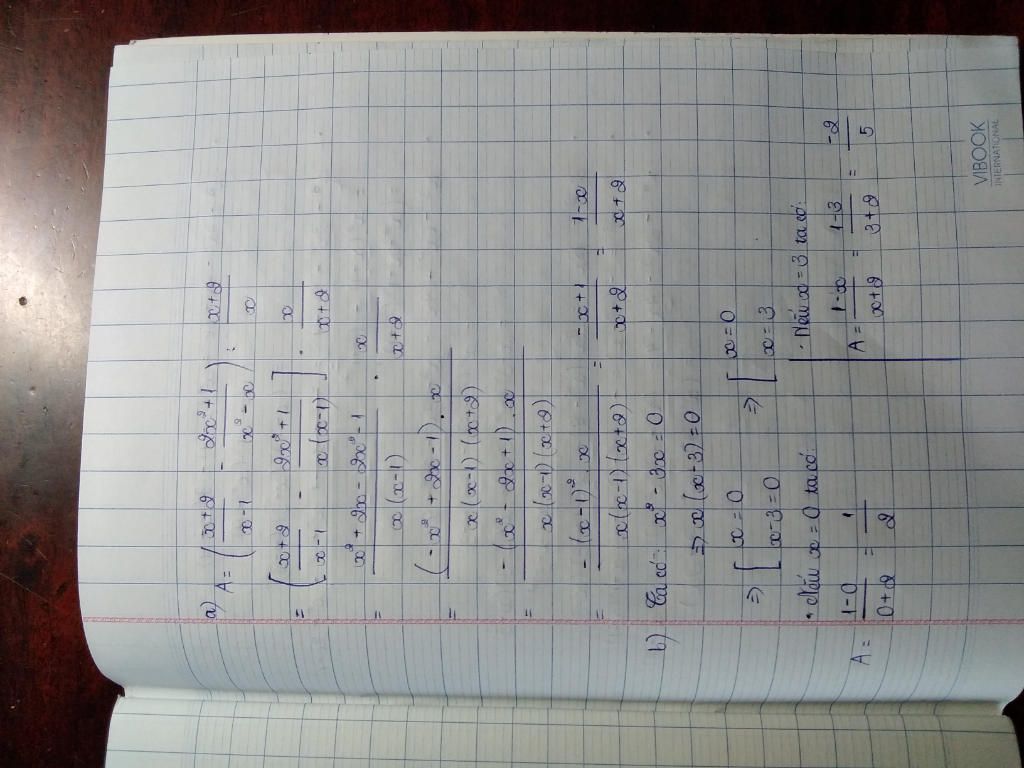 a) A = ( (x+2)/(x-1) - (2x²+1)/(x²-x) ) : (x+2)/x
= [ (x+2)/(x-1) - (2x²+1)/(x(x-1)) ] . x/(x+2)
= (x²+2x-2x²-1)/(x(x-1)) . x/(x+2)
= ((-x²+2x-1).x)/(x(x-1)(x+2))
= (-(x²-2x+1).x)/(x(x-1)(x+2))
= (-(x-1)².x)/(x(x-1)(x+2)) = (-x+1)/(x+2) = (1-x)/(x+2)
b) Ta có: x² - 3x = 0
=> x(x-3)=0
=> [ x=0 => [ x=0
x-3=0 x=3
• Nếu x=0 ta có:
A = (1-0)/(0+2) = 1/2
• Nếu x=3 ta có:
A = (1-x)/(x+2) = (1-3)/(3+2) = -2/5
VIBOOK
INTERNATIONAL